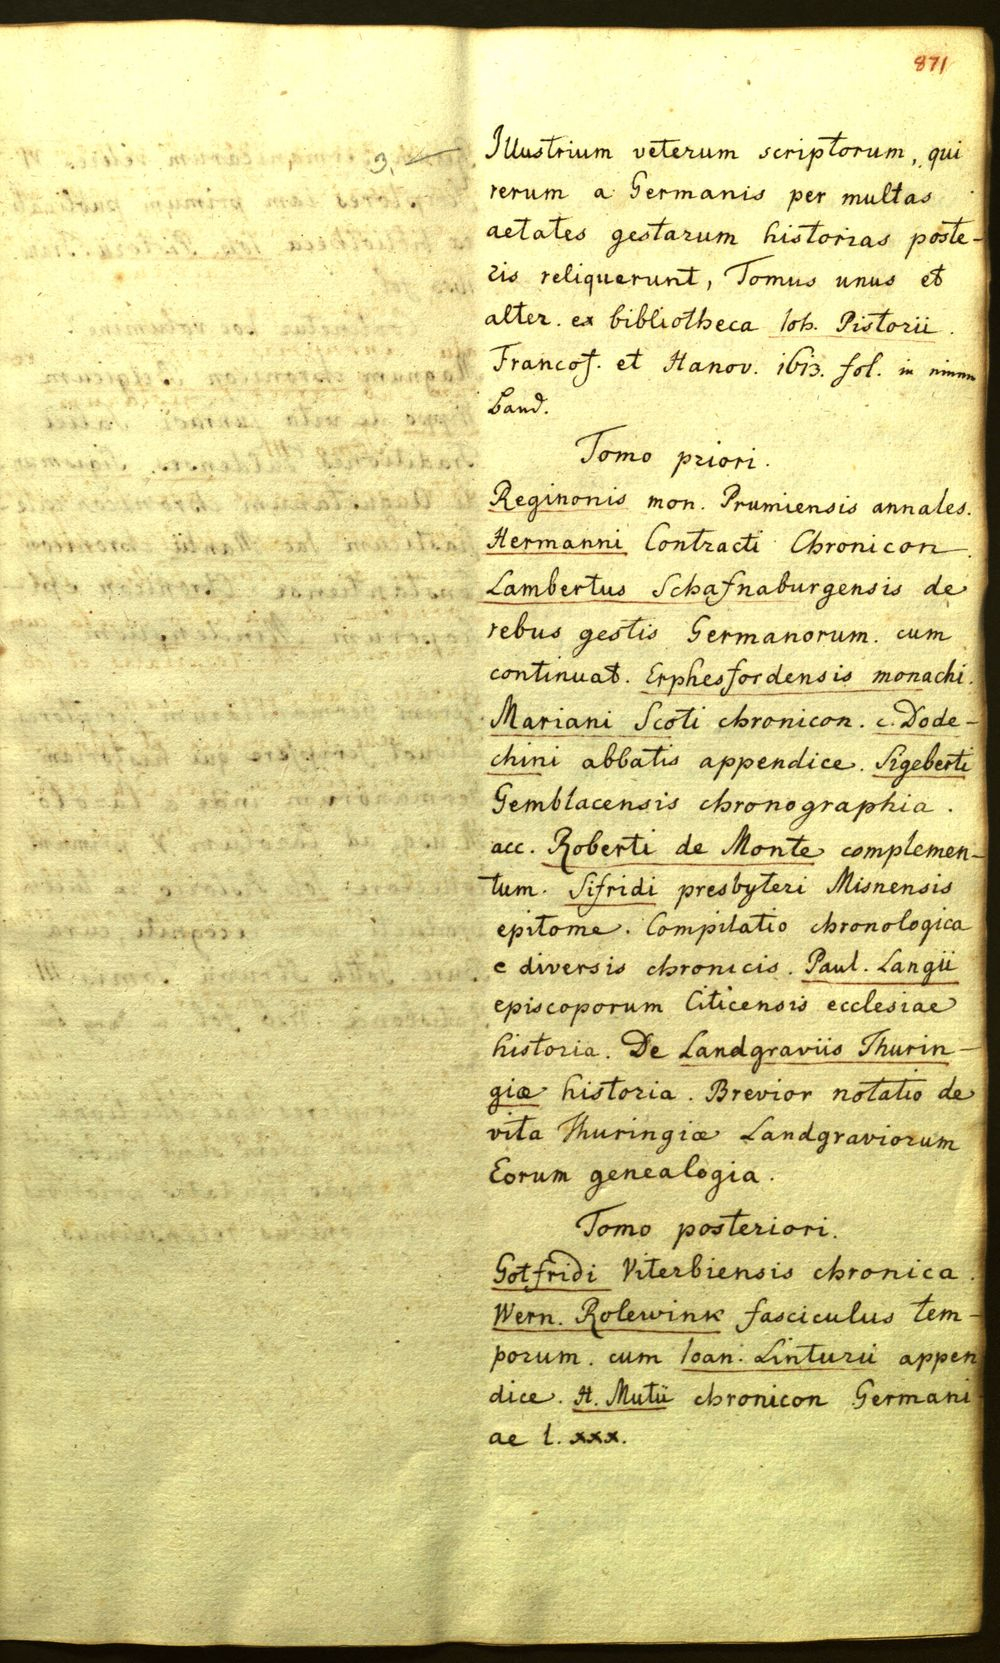 871
3.
Illustrium veterum scriptorum, qui
rerum a Germanis per multas
aetates gestarum historias poste-
ris reliquerunt, Tomus unus et
alter. ex bibliotheca Ioh. Pistorii.
Francof. et Hanov. 1613. fol. in einem
Band.
Tomo priori.
Reginonis mon. Prumiensis annales.
Hermanni Contracti Chronicon.
Lambertus Schafnaburgensis de
rebus gestis Germanorum. cum
continuat. Erphesfordensis monachi.
Mariani Scoti chronicon. c. Dode-
chini abbatis appendice. Sigeberti
Gemblacensis chronographia.
acc. Roberti de Monte complemen-
tum. Sifridi presbyteri Misnensis
epitome. Compilatio chronologica
e diversis chronicis. Paul. Langii
episcoporum Citicensis ecclesiae
historia. De Landgraviis Thurin-
giæ historia. Brevior notatio de
vita Thuringiæ Landgraviorum
Eorum genealogia.
Tomo posteriori.
Gotfridi Viterbiensis chronica.
Wern. Rolewink fasciculus tem-
porum. cum Ioan. Linturii appen
dice. H. Mutii chronicon Germani
ae l. xxx.